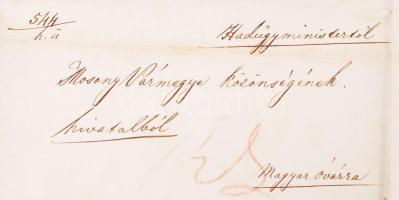 544
h. ü
Hadügyministertől
Mosony Vármegye közönségének.
hivatalból
Magyar óvárra